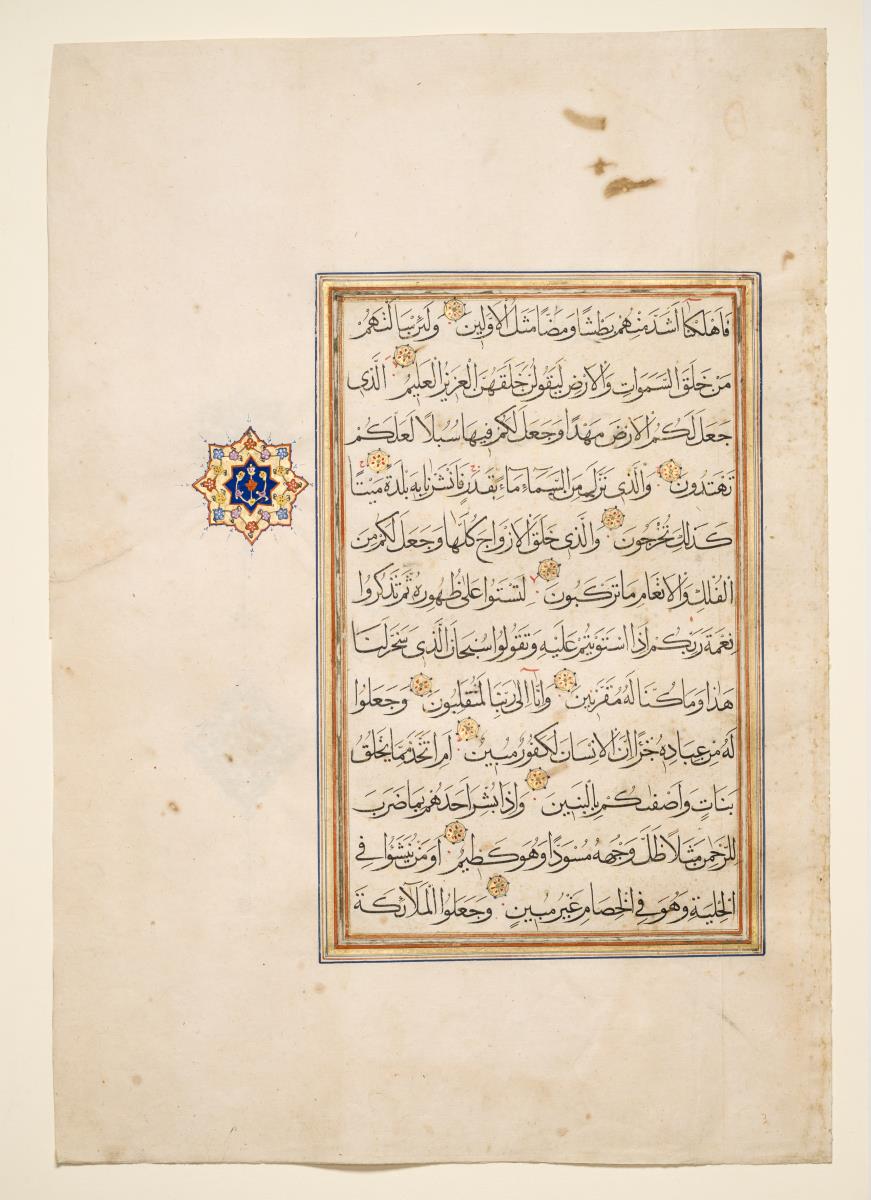 فَاَهْلَكْنَا اَشَدَّ مِنْهُمْ بَطْشًا وَمَضٰى مَثَلُ الْاَوَّلِينَ وَلَئِنْ سَاَلْتَهُمْ
مَنْ خَلَقَ السَّمَوَاتِ وَالْاَرْضَ لَيَقُولُنَّ خَلَقَهُنَّ الْعَزِيزُ الْعَلِيمُ الَّذِى
جَعَلَ لَكُمُ الْاَرْضَ مَهْدًا وَجَعَلَ لَكُمْ فِيهَا سُبُلًا لَعَلَّكُمْ
تَهْتَدُونَ وَالَّذِى نَزَّلَ مِنَ السَّمَآءِ مَآءً بِقَدَرٍ فَاَنْشَرْنَا بِهِ بَلْدَةً مَيْتًا
كَذَلِكَ تُخْرَجُونَ وَالَّذِى خَلَقَ الْاَزْوَاجَ كُلَّهَا وَجَعَلَ لَكُمْ مِنَ
الْفُلْكِ وَالْاَنْعَامِ مَا تَرْكَبُونَ لِتَسْتَوُا عَلَى ظُهُورِهِ ثُمَّ تَذْكُرُوا
نِعْمَةَ رَبِّكُمْ اِذَا اسْتَوَيْتُمْ عَلَيْهِ وَتَقُولُوا سُبْحَانَ الَّذِى سَخَّرَ لَنَا
هَذَا وَمَا كُنَّا لَهُ مُقْرِنِينَ وَاِنَّا اِلَى رَبِّنَا لَمُنْقَلِبُونَ وَجَعَلُوا
لَهُ مِنْ عِبَادِهِ جُزْءًا اِنَّ الْاِنْسَانَ لَكَفُورٌ مُبِينٌ اَمِ اتَّخَذَ مِمَّا يَخْلُقُ
بَنَاتٍ وَاَصْفَيكُمْ بِالْبَنِينَ وَاِذَا بُشِّرَ اَحَدُهُمْ بِمَا ضَرَبَ
لِلرَّحْمَنِ مَثَلًا ظَلَّ وَجْهُهُ مُسْوَدًّا وَهُوَ كَظِيمٌ اَوَمَنْ يُنَشَّؤُا فِى
الْحِلْيَةِ وَهُوَ فِى الْخِصَامِ غَيْرُ مُبِينٍ وَجَعَلُوا الْمَلَآئِكَةَ